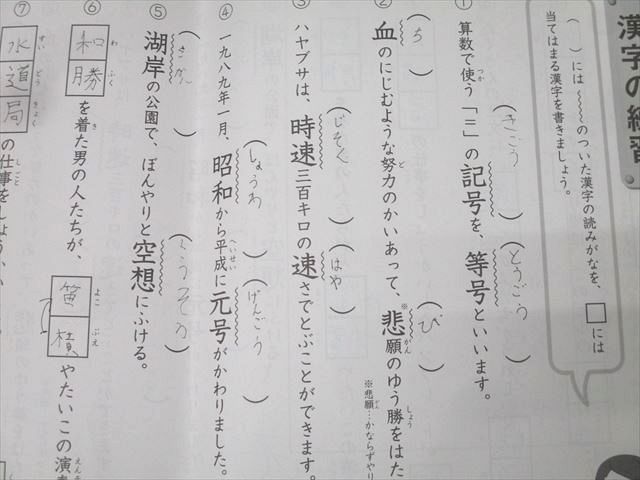 漢字の練習
（　）には〜〜〜のついた漢字の読みがなを、□には
当てはまる漢字を書きましょう。
① 算数で使う「＝」の記号を、等号といいます。
つか
（きごう）
（とうごう）
② 血のにじむような努力のかいあって、※悲願のゆう勝をはた
（ち）
ど
（ひ）
がん
しょう
※悲願…かならずやり
③ ハヤブサは、時速三百キロの速さでとぶことができます。
（じそく）
（はや）
④ 一九八九年一月、昭和から平成に元号がかわりました。
（しょうわ）
へいせい
（げんごう）
⑤ 湖岸の公園で、ぼんやりと空想にふける。
（こがん）
（くうそう）
⑥ 和
わ
ふく
を着た男の人たちが、
き
笛
よこ
ぶえ
やたいこの演
えん
⑦ 水道局の仕事をしょうかい
すい
どう
きょく
しごと